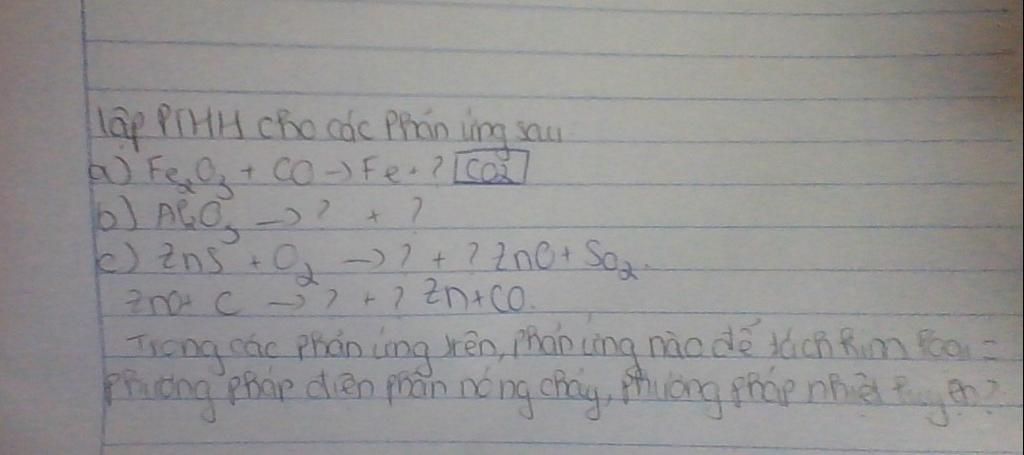 Lập PTHH cho các phản ứng sau
a) Fe2O3 + CO → Fe + ? CO2
b) Al2O3 → ? + ?
c) ZnS + O2 → ? + ? ZnO + SO2.
ZnO + C → ? + ? Zn + CO.
Trong các phản ứng trên, phản ứng nào để tách kim loại =
phương pháp điện phân nóng chảy, phương pháp nhiệt luyện?